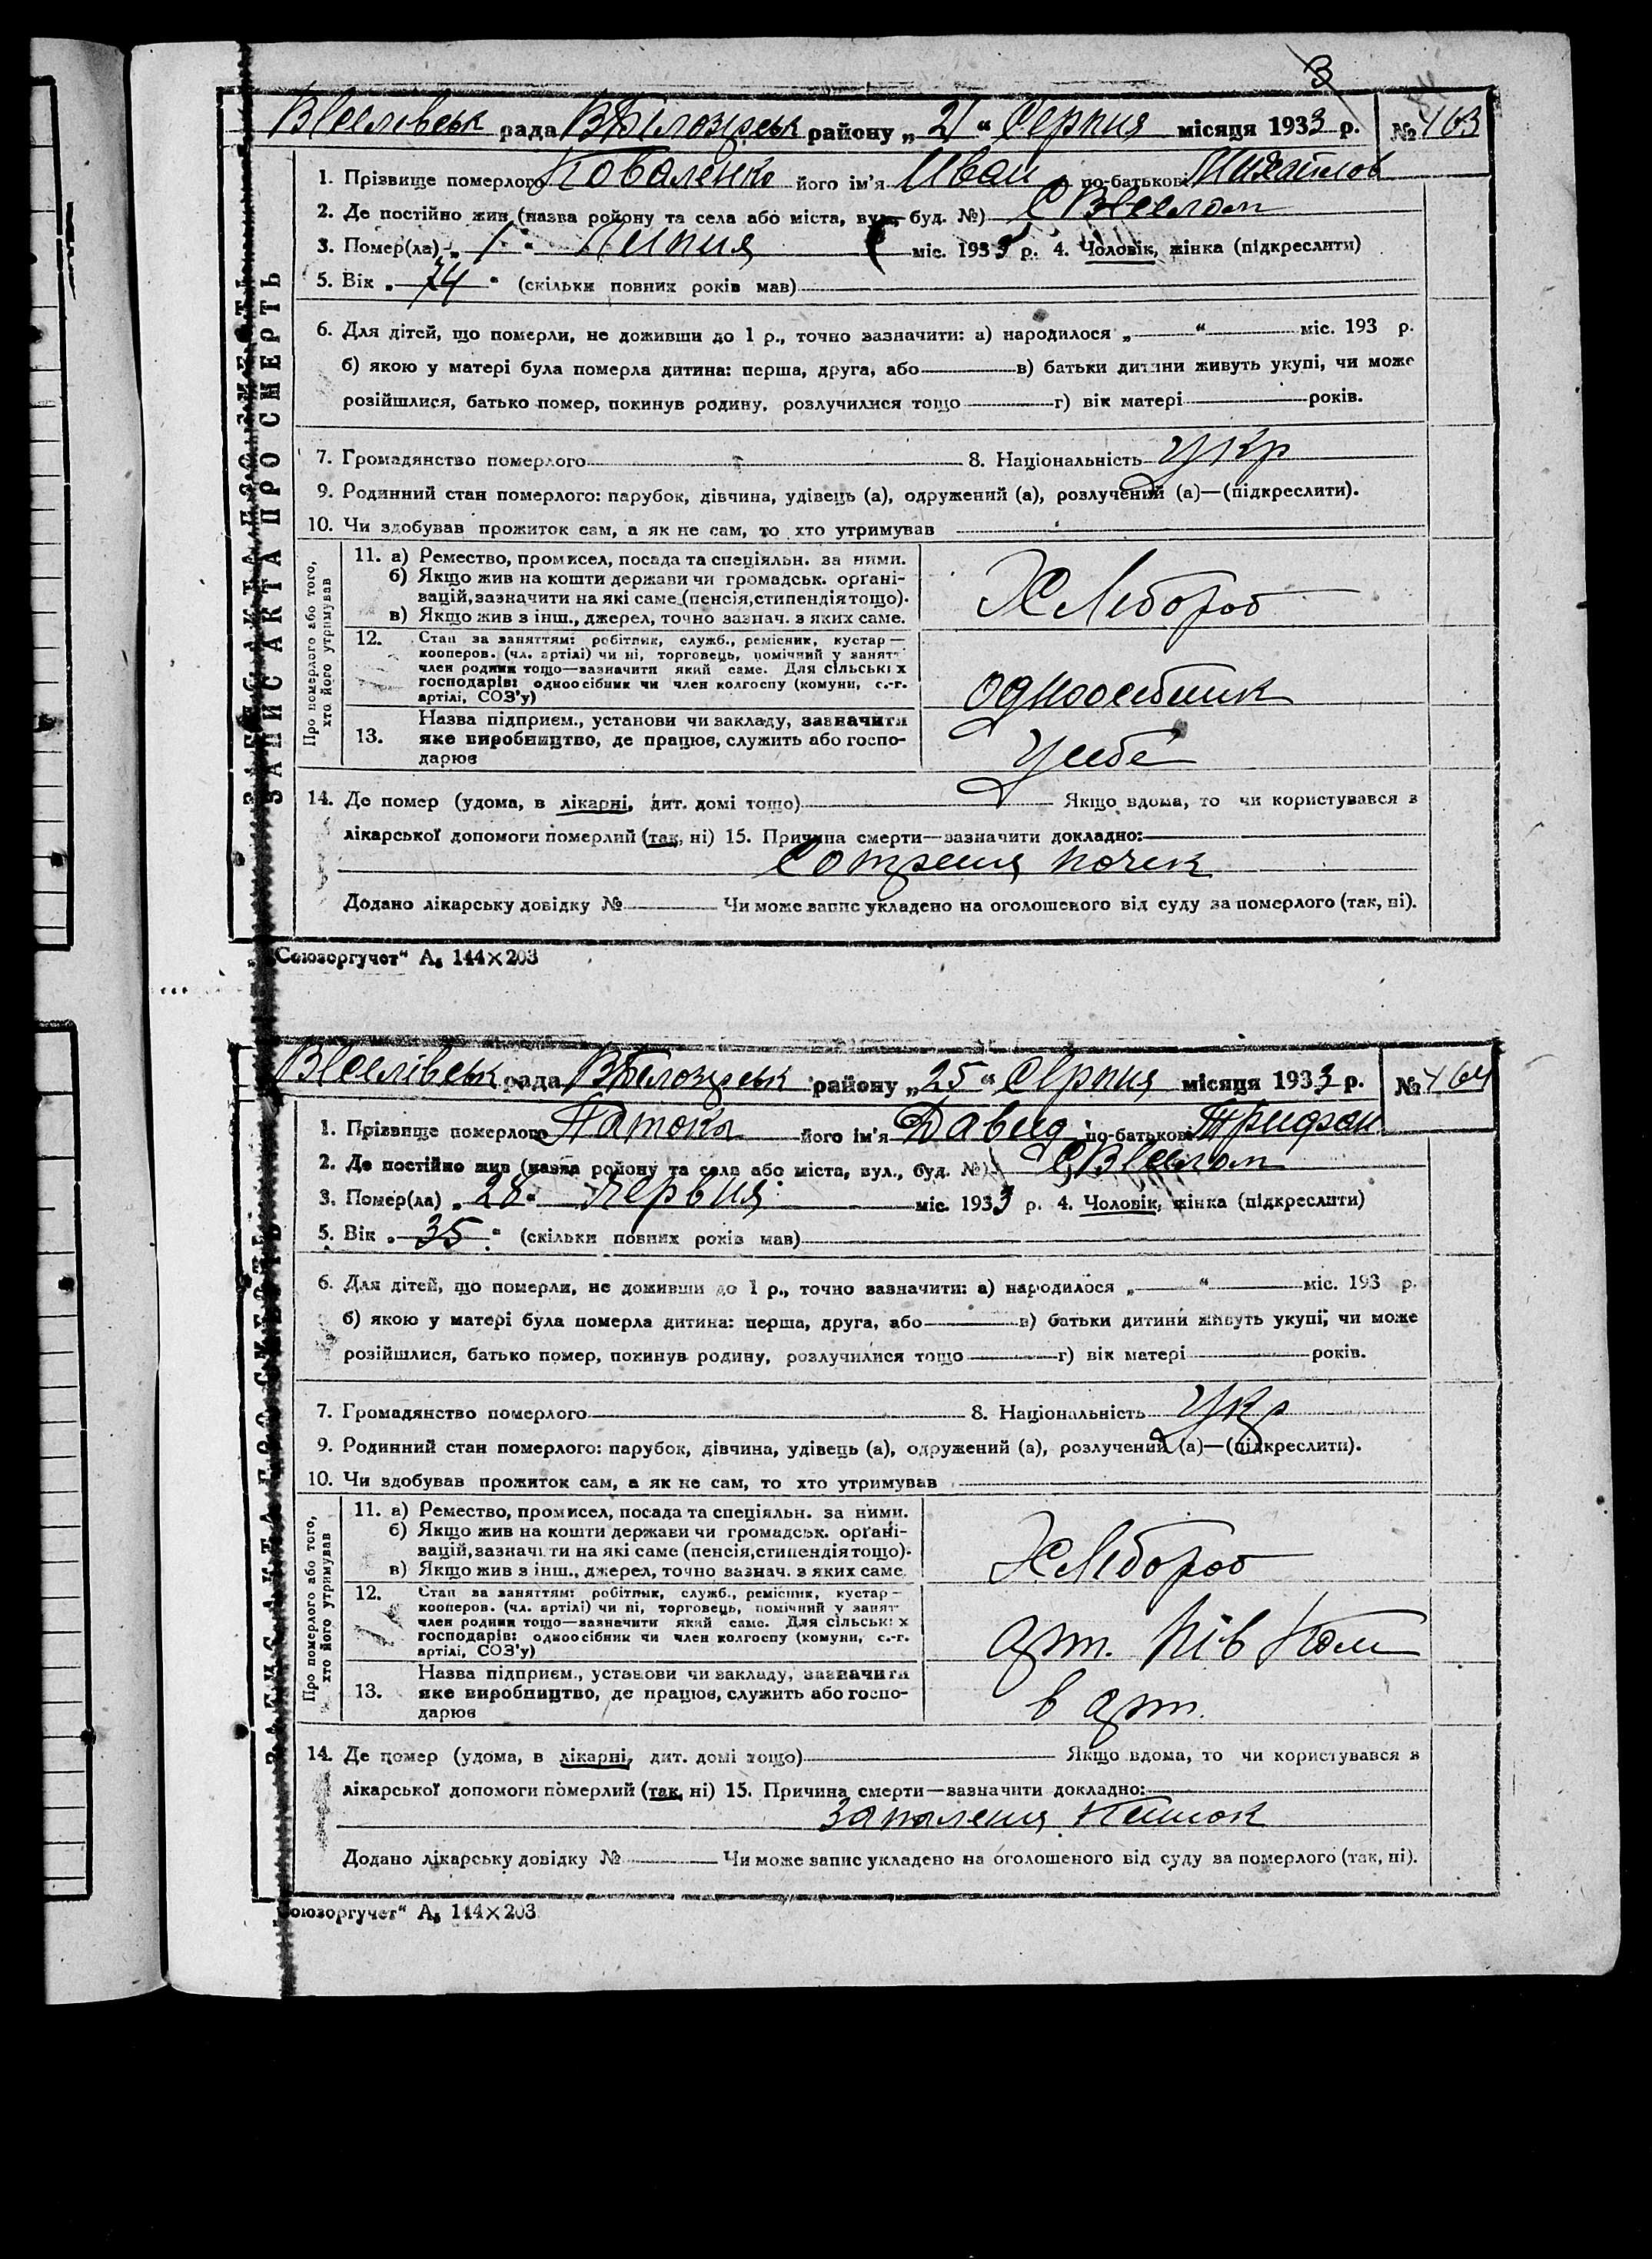 3
Веселівськ рада ВБілозірськ району „21“ Серпня місяця 1933 р. № 163
ЗАПИС АКТА ПРО СМЕРТЬ
1. Прізвище померлого Коваленко його ім'я Иван по-батькові Михайлов
2. Де постійно жив (назва району та села або міста, вул., буд. №) С ВВеселом
3. Помер(ла) „1“ Липня міс. 1933 р. 4. Чоловік, жінка (підкреслити)
5. Вік „74“ (скільки повних років мав)
6. Для дітей, що померли, не доживши до 1 р., точно зазначити: а) народилося „ “ міс. 193 р.
б) якою у матері була померла дитина: перша, друга, або в) батьки дитини живуть укупі, чи може
розійшлися, батько помер, покинув родину, розлучилися тощо г) вік матері років.
7. Громадянство померлого 8. Національність укр
9. Родинний стан померлого: парубок, дівчина, удівець (а), одружений (а), розлучений (а)—(підкреслити).
10. Чи здобував прожиток сам, а як не сам, то хто утримував
Про померлого або того, хто його утримував
11. а) Ремество, промисел, посада та спеціяльн. за ними.
б) Якщо жив на кошти держави чи громадськ. орґані-
зацій, зазначити на які саме (пенсія, стипендія тощо).
в) Якщо жив з інш., джерел, точно зазнач. з яких саме.
Хлебороб
12. Стан за заняттям: робітник, служб., ремісник, кустар—
кооперов. (чл. артілі) чи ні, торговець, помічний у занят
член родини тощо—зазначити який саме. Для сільських
господарів: одноосібник чи член колгоспу (комуни, с.-г.
артілі, СОЗ'у)
одноосебник
13. Назва підприєм., установи чи закладу, зазначити
яке виробництво, де працює, служить або госпо-
дарює
усебе
14. Де помер (удома, в лікарні, дит. домі тощо) Якщо вдома, то чи користувався з
лікарської допомоги померлий (так, ні) 15. Причина смерти—зазначити докладно:
почек
Додано лікарську довідку № Чи може запис укладено на оголошеного від суду за померлого (так, ні).
„Союзоргучет“ А₅ 144×203
Веселівськ рада ВБілозірськ району „25“ Серпня місяця 1933 р. № 164
1. Прізвище померлого Патока його ім'я Давид по-батькові Трифон
2. Де постійно жив (назва району та села або міста, вул., буд. №) С ВВеселом
3. Помер(ла) „28“ Червня міс. 1933 р. 4. Чоловік, жінка (підкреслити)
5. Вік „35“ (скільки повних років мав)
6. Для дітей, що померли, не доживши до 1 р., точно зазначити: а) народилося „ “ міс. 193 р.
б) якою у матері була померла дитина: перша, друга, або в) батьки дитини живуть укупі, чи може
розійшлися, батько помер, покинув родину, розлучилися тощо г) вік матері років.
7. Громадянство померлого 8. Національність укр
9. Родинний стан померлого: парубок, дівчина, удівець (а), одружений (а), розлучений (а)—(підкреслити).
10. Чи здобував прожиток сам, а як не сам, то хто утримував
Про померлого або того, хто його утримував
11. а) Ремество, промисел, посада та спеціяльн. за ними.
б) Якщо жив на кошти держави чи громадськ. орґані-
зацій, зазначити на які саме (пенсія, стипендія тощо).
в) Якщо жив з інш., джерел, точно зазнач. з яких саме.
Хлебороб
12. Стан за заняттям: робітник, служб., ремісник, кустар—
кооперов. (чл. артілі) чи ні, торговець, помічний у занят
член родини тощо—зазначити який саме. Для сільських
господарів: одноосібник чи член колгоспу (комуни, с.-г.
артілі, СОЗ'у)
арт.
13. Назва підприєм., установи чи закладу, зазначити
яке виробництво, де працює, служить або госпо-
дарює
в арт.
14. Де помер (удома, в лікарні, дит. домі тощо) Якщо вдома, то чи користувався з
лікарської допомоги померлий (так, ні) 15. Причина смерти—зазначити докладно:
Запаленя Кишок
Додано лікарську довідку № Чи може запис укладено на оголошеного від суду за померлого (так, ні).
Союзоргучет“ А₅ 144×203